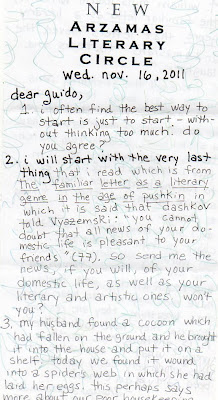 NEW
ARZAMAS
LITERARY
CIRCLE
wed. nov. 16, 2011
dear guido,
1. i often find the best way to
start is just to start – with-
out thinking too much. do
you agree?
2. i will start with the very last
thing that i read which is from
The familiar letter as a literary
genre in the age of pushkin in
which it is said that dashkov
told Vyazemski: "you cannot
doubt that all news of your do-
mestic life is pleasant to your
friends" (77). so send me the
news, if you will, of your
domestic life, as well as your
literary and artistic ones won't
you?
3. my husband found a cocoon which
had fallen on the ground and he brought
it into the house and put it on a
shelf. today we found it wound
into a spider's web in which she had
laid her eggs. this perhaps says
more about our poor housekeeping